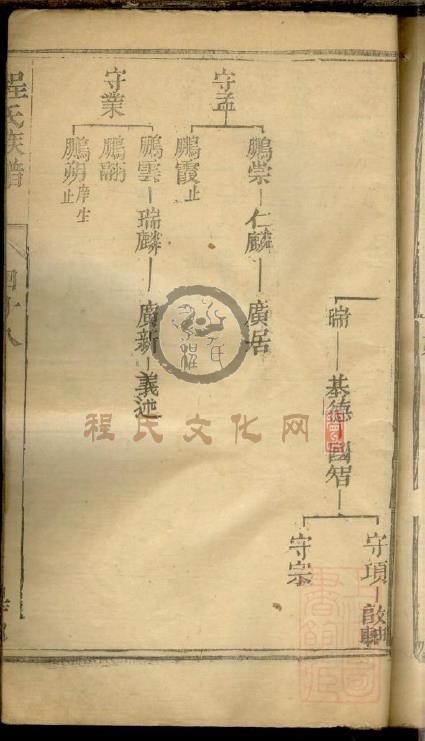 瑞
基德
國智
守項
守宗
守孟
鵬崇
仁麟
廣居
鵬霞止
守業
鵬雲
瑞麟
廣新
義述
鵬翮
鵬翔庠生止
程氏族譜
四十八
程氏文化网